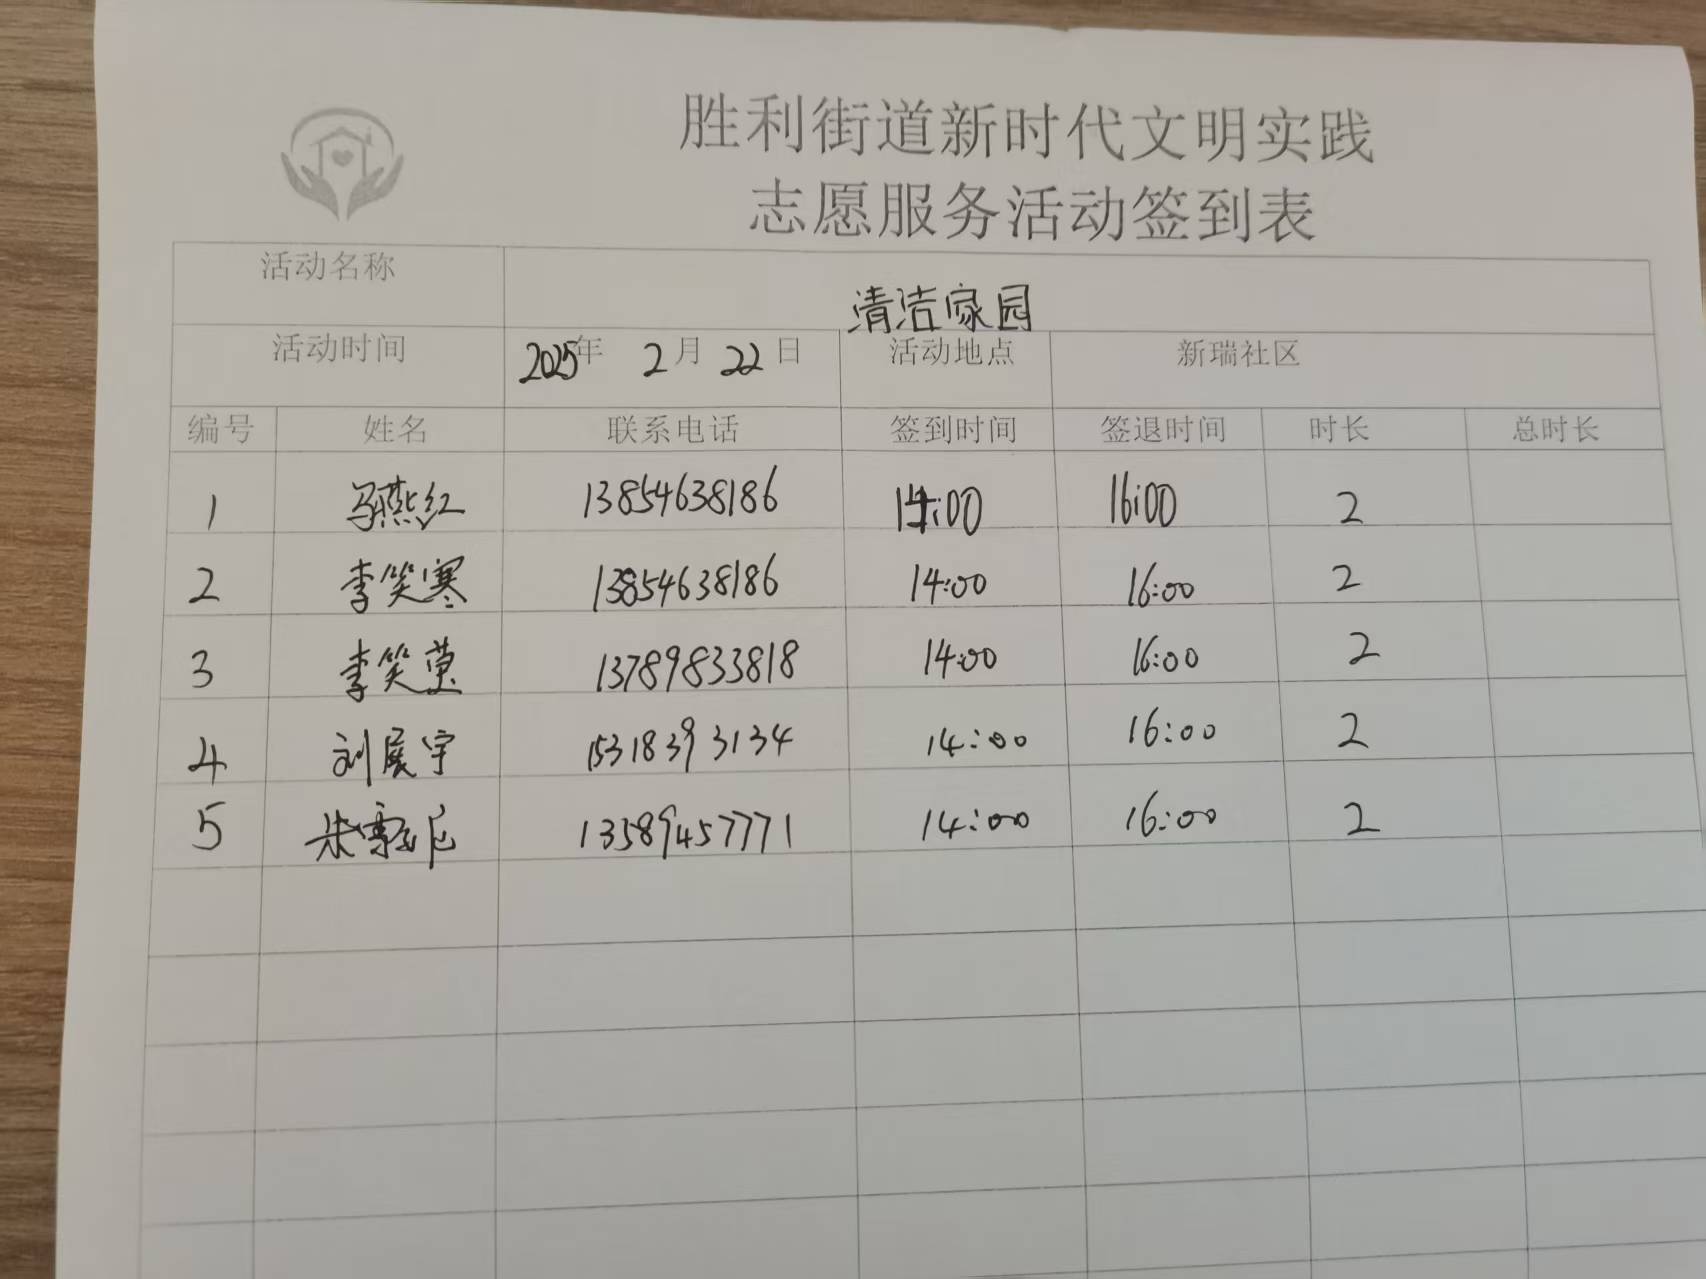 胜利街道新时代文明实践
志愿服务活动签到表
活动名称 清洁家园
活动时间 2025年 2月22日 活动地点 新瑞社区
编号 姓名 联系电话 签到时间 签退时间 时长 总时长
1 马燕红 13854638186 14:00 16:00 2
2 李笑寒 13854638186 14:00 16:00 2
3 李笑 13789833818 14:00 16:00 2
4 刘展宇 15318393134 14:00 16:00 2
5 朱 13589457771 14:00 16:00 2